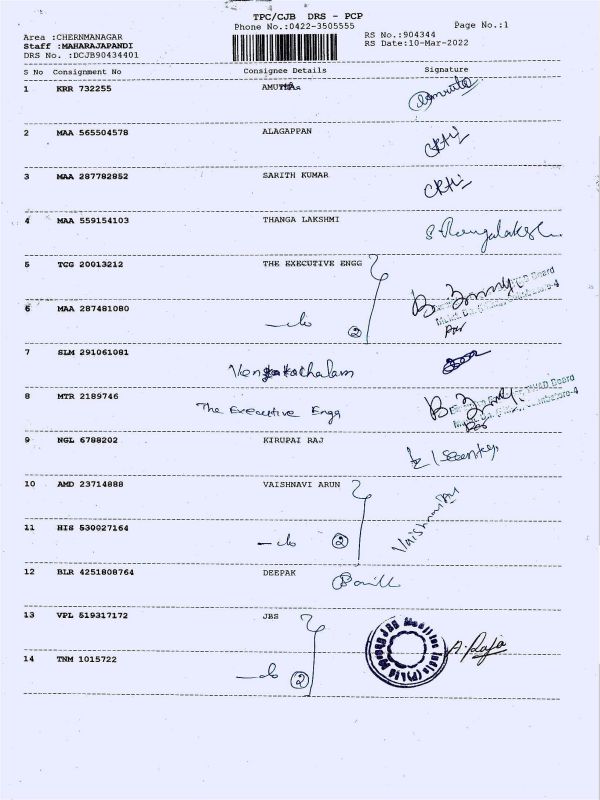 TPC/CJB DRS - PCP
Phone No.:0422-3505555
Page No.:1
Area :CHERNMANAGAR
Staff :MAHARAJAPANDI
DRS No. :DCJB90434401
RS No.:904344
RS Date:10-Mar-2022
S No Consignment No Consignee Details Signature
1 KRR 732255 AMUTHA
2 MAA 565504578 ALAGAPPAN
3 MAA 287782852 SARITH KUMAR
4 MAA 559154103 THANGA LAKSHMI
5 TCG 20013212 THE EXECUTIVE ENGG
6 MAA 287481080 2
7 SLM 291061081 Venkatachalam
8 MTR 2189746 The Executive Engg
9 NGL 6788202 KIRUPAI RAJ
10 AMD 23714888 VAISHNAVI ARUN
Vaishnavi
11 HIS 530027164 2
12 BLR 4251808764 DEEPAK
13 VPL 519317172 JBS
A. Raja
14 TNM 1015722 2